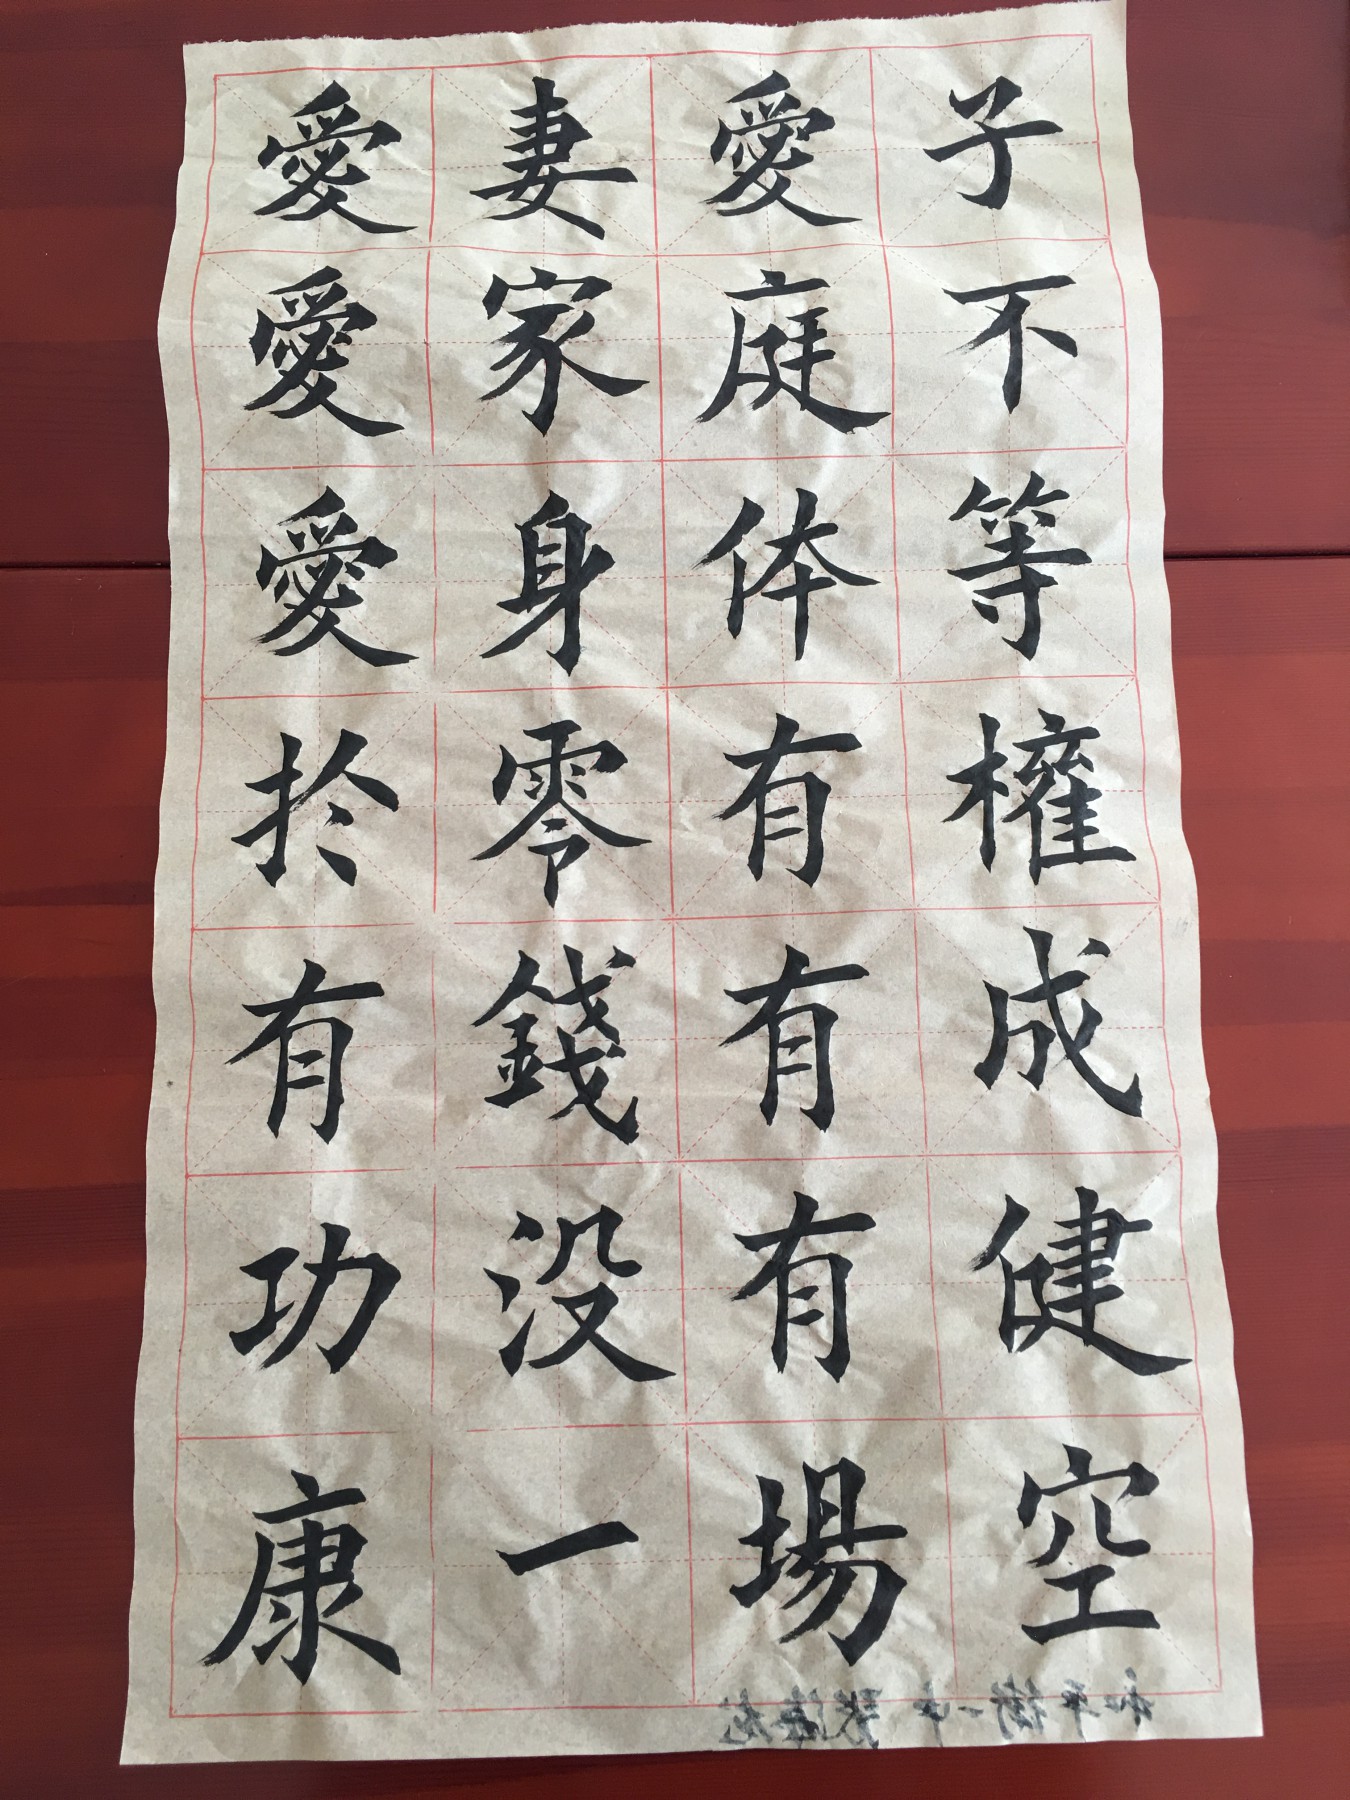 愛妻愛子
愛家庭不
愛身体等
於零有權
有錢有成
功没有健
康一場空
和平街一中